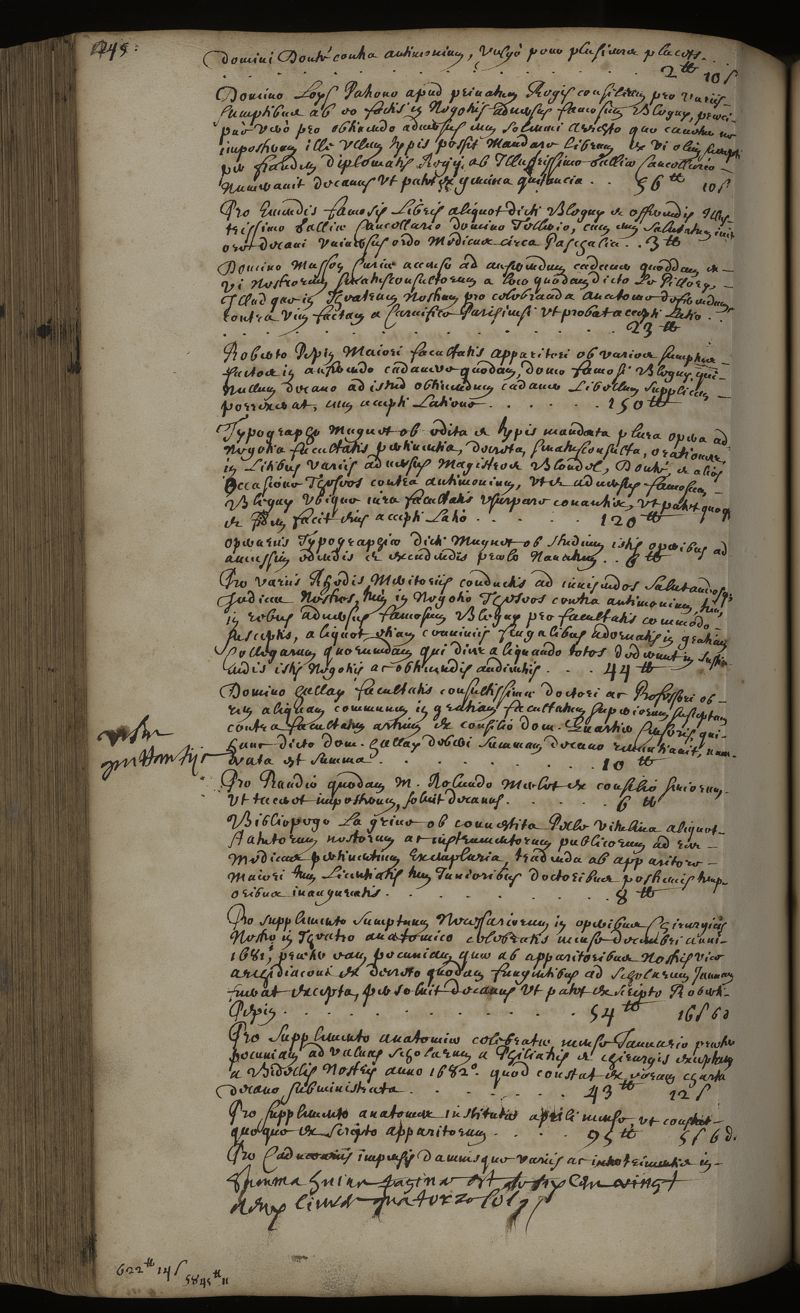 1245:
Domini Douté contra antimonium, vulgò pour plusieurs placets.
2 tt 10 s
Domino Loys Patrono apud privatum Regis consilium pro variis
sumptibus ab eo factis in Negotiis adversus famosum Blegny,
pro obtinendo adversus eum solemni arresto quo
imposterum ille ullum typis possit mandare Librum, ex vi
per fraudem diplomatis Regii, ab Illustrissimo Galliae Cancellario
Numeravit decanus ut patet ex gemina quitancia . . 56 tt 10 s
Pro Emendis famosis Libris aliquot dicti Blegny et offerendis Illus-
trissimo Galliae Cancellario domino Tellerio, cum eum salutatum
decani universus ordo Medicus circa Paschalia . . 3 tt
Domino Masson Curiae ad auferendum cadaver quoddam ex
vi Nostrorum senatusconsultorum a loco quodam dicto Le Pillory,
Illudque in Theatrum Nostrum pro celebranda anatome deferendum
contra vim factam a Carnifice Parisiensi ut probat accepti Latio . .
23 tt
Roberto Pepin Maiori facultatis apparitori ob varios sumptus
factos in auferendo cadavere quodam, domo famosi Blegny, qui
Nullum decano ad istud obtinendum cadaver Libellum supplicem
porrexerat, cum accepti Latione . . . . . . 150 tt
Typographo Muguet ob edita et typis mandata plura opera ad
Negotia facultatis pertinentia, decreta, senatusconsulta, orationes,
in Litibus variis adversus Magistros Blondel, Douté, et alios
Occasione Theseos contra antimonium, ut et adversus famosum
Blegny ubique iura facultatis usurpare conantis, ut patet quoque
et fidem facit eius accepti Latio . . . . . 120 tt
operariis Typographiae dicti Muguet ob studium istis operibus ad
edendis et excudendis praelo Navatum . . 6 tt
Pro variis Rhedis Meritoriis conductis ad invisendos salutandosque
Judices Nostros, tum in Negotio Theseos contra antimonium, tum
in rebus adversus famosum Blegny pro facultatis commodo
susceptis, aliquot etiam conviviis frugalibus adornatis in gratiam
Collegarum quorumdam qui dies aliquando totos dederunt in
istis Negotiis ac obtinendis audientiis . . . 44 tt
Domino Gallay facultatis consultissimae doctori ac Professori ob
rem aliquam communem in gratiam facultatum superiorum susceptam
contra facultatem artium ex consilio dom. Quartier Censoris qui
hanc dicto dom. Gallay deberi summam decano renuntiavit, num-
erata est summa . . . . . . . . 10 tt
Pro Prandio quodam M. Rolando Merlet ex consilio seniorum
ut taceret imposterum, solvit decanus . . . . . 6 tt
Bibliopego La grive ob convestita Pelle vitulina aliquot
statutorum nostrorum ac instrumentorum publicorum ad rem
Medicam pertinentium Exemplaria, tradenda ab apparitore
Maiori tum Licentiatis tum Junioribus doctoribus postremis temp-
oribus inauguratis . . . . . . . . 8 tt
Pro supplemento sumptuum Necessariorum in operibus Chirurgicis
Nostro in Theatro anatomico celebratis mense decembri anni
1681. praeter eam pecuniam quae ab apparitoribus Nostris vice
archidiaconi ex decreto quodam fungentibus ad scholarum Januam
fuerat excepta, persolvit decanus ut patet ex scripto Roberti
Pepin . . . . . . . . . . 54 tt 16 s 6 d
Pro supplemento anatomiae celebratae mense Januario praeter
pecuniam ad valvas scholarum a Philiatris et chirurgis exceptam
a Bedellis Nostris anno 1682°. quod constat ex eorum charta
Decano subministrata . . . . . . . 43 tt 12 s
Pro supplemento anatomes institutae aprili mense, ut constat
quoque ex scripto apparitorum . . . . 95 tt 5 s 6 d.
Pro Cadaveris impensis Damnisque variis ac in-
Summa huius paginae est de six cens vingt
deux livres quatorze sols
622 tt 14 s
5845 tt 11